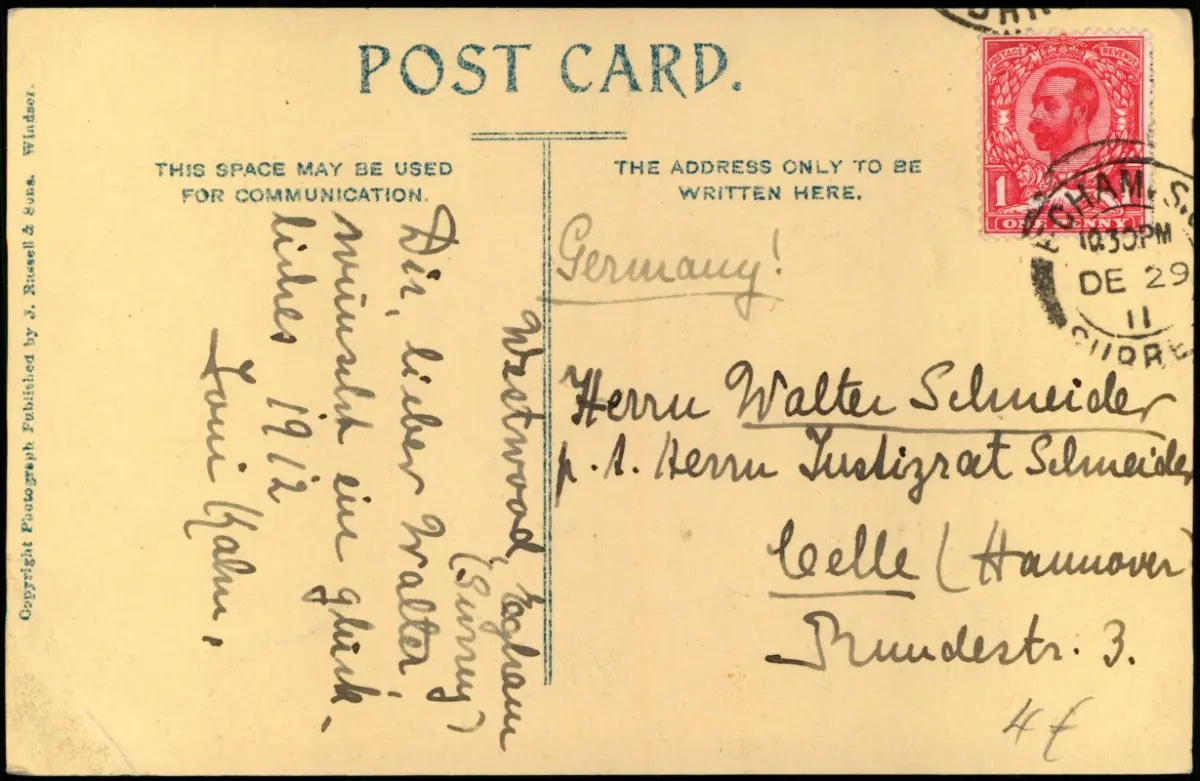 POST CARD.
THIS SPACE MAY BE USED
FOR COMMUNICATION.
THE ADDRESS ONLY TO BE
WRITTEN HERE.
Copyright Photograph Published by J. Russell & Sons. Windsor.
POSTAGE REVENUE
1
ONE PENNY
EGHAM. S.
10.30PM
DE 29
11
Westwood, Egham
(Surrey)
Dir, lieber Walter,
wünscht ein glück-
liches 1912
Toni Kahn,
Germany!
Herrn Walter Schneider
p. A. Herrn Justizrat Schneider
Celle (Hannover)
Rundestr. 3.
4 €